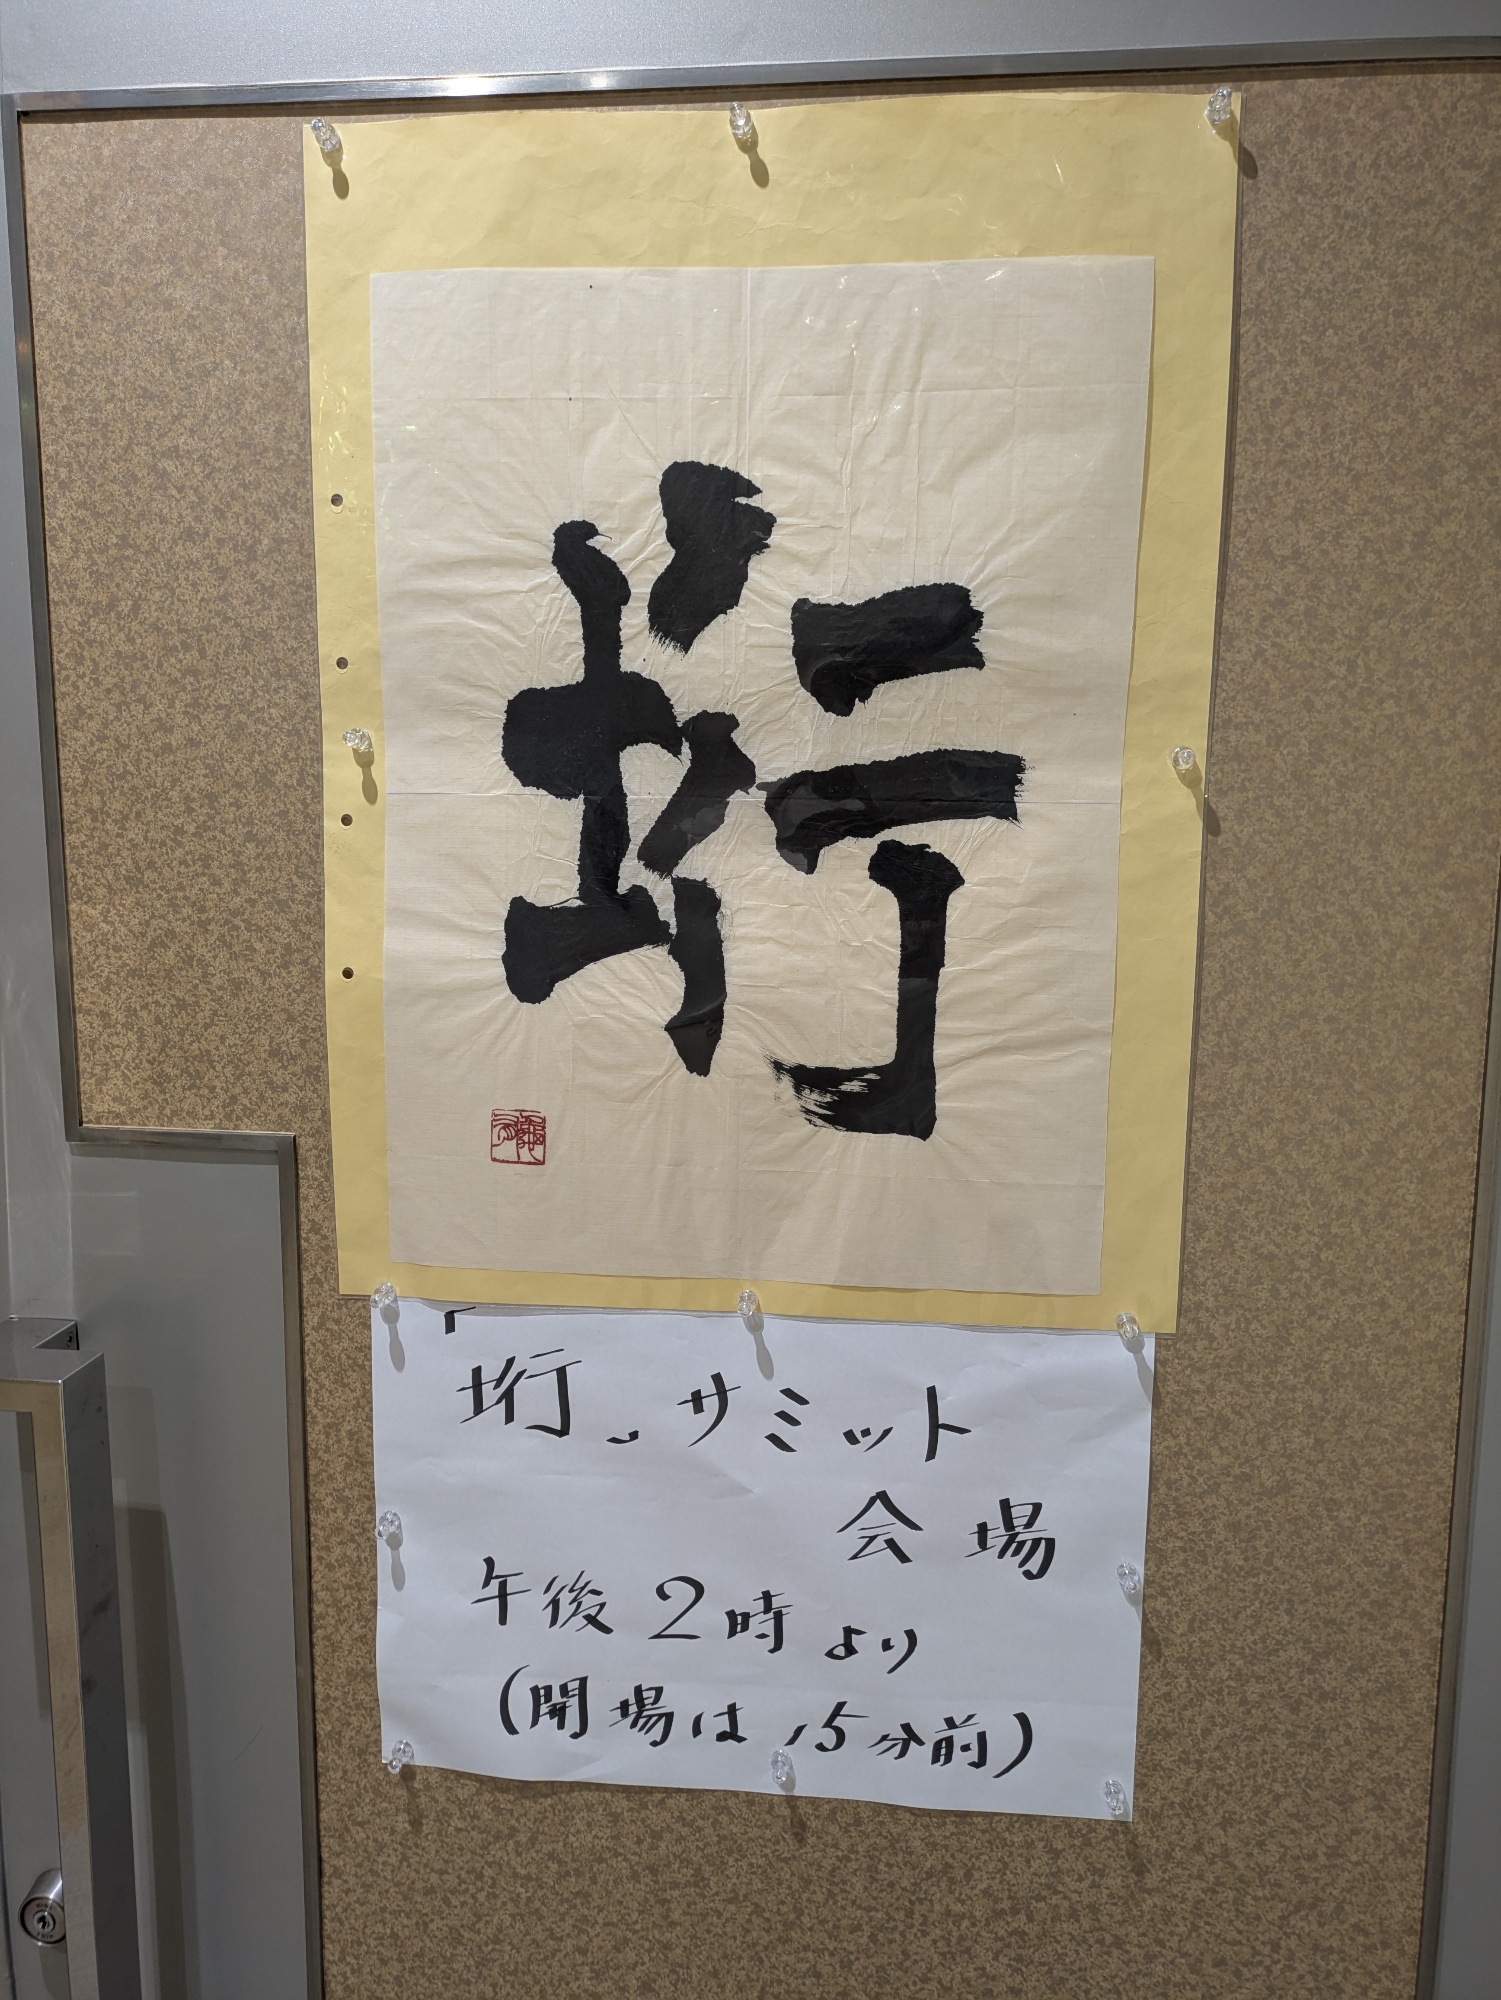 垳
「垳」サミット
会場
午後2時より
(開場は15分前)